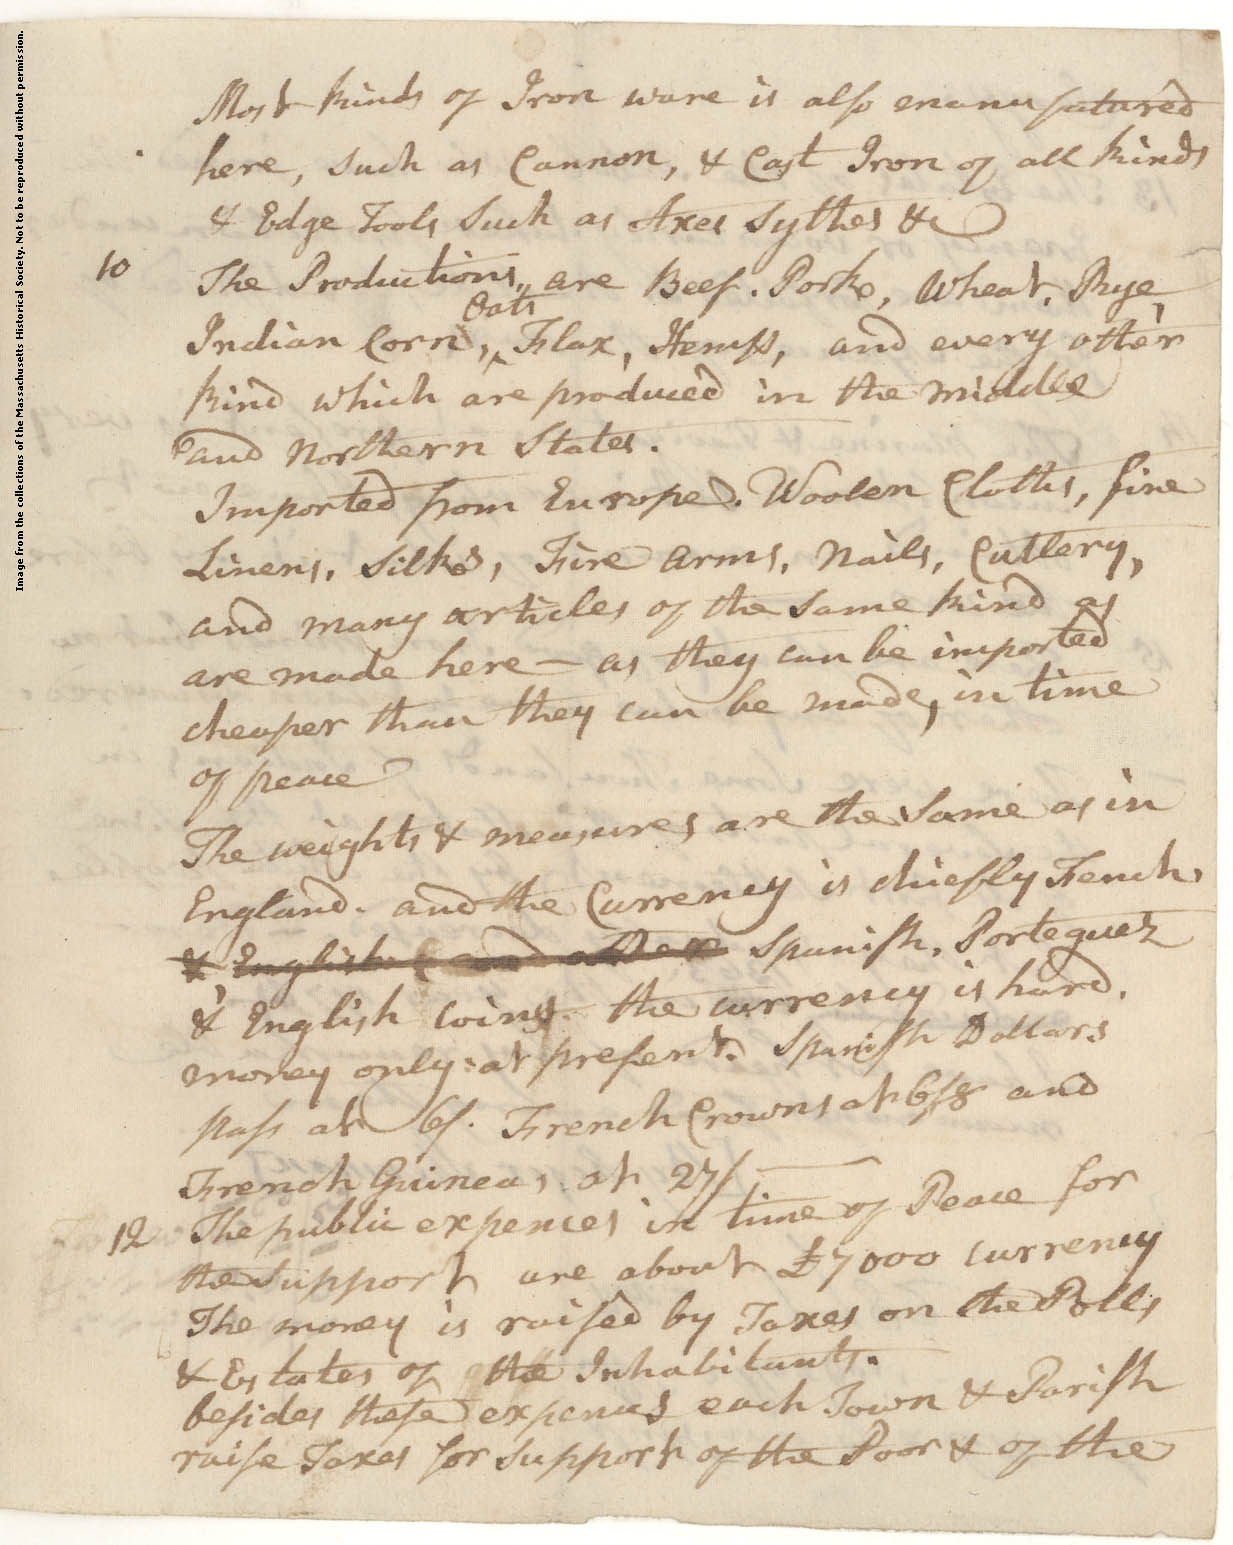 Image from the collections of the Massachusetts Historical Society. Not to be reproduced without permission.
Most kinds of Iron ware is also manufatured
here, such as Cannon, & Cast Iron of all kinds
& Edge Tools such as Axes Sythes &c
10 The Productions, are Beef. Pork, Wheat, Rye,
Oats
Indian Corn, ^ Flax, Hemp, and every other
kind which are produced in the middle
and Northern States.
Imported from Europe. Woolen Cloths, fine
Linens, Silks, Fire arms, Nails, Cutlery,
and many articles of the same kind as
are made here — as they can be imported
cheaper than they can be made, in time
of peace
The weights & measures are the same as in
England. and the Currency is chiefly Fench,
&, English Spanish, Porteguez
& English coins. the currency is hard
money only at present. Spanish Dollars
pass at 6/. French Crowns at 6/8 and
French Guineas at 27/
12 The public expences in time of Peace for
the support are about £7000 currency
The money is raised by Taxes on the Polls
& Estates of the Inhabitants.
besides these expences each Town & Parish
raise Taxes for support of the Poor & of the